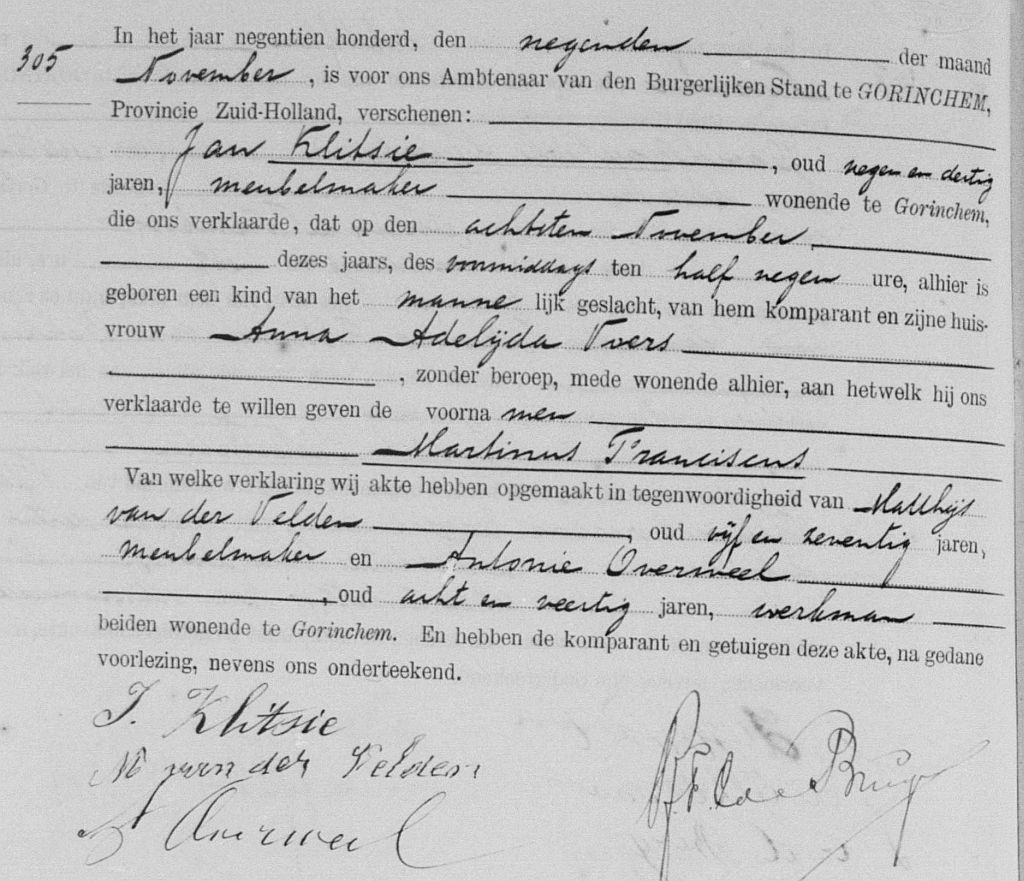 305
In het jaar negentien honderd, den negenden der maand
November, is voor ons Ambtenaar van den Burgerlijken Stand te GORINCHEM,
Provincie Zuid-Holland, verschenen:
Jan Klitsie, oud negen en dertig
jaren, meubelmaker wonende te Gorinchem,
die ons verklaarde, dat op den achtsten November,
dezes jaars, des voormiddags ten half negen ure, alhier is
geboren een kind van het mannelijk geslacht, van hem komparant en zijne huis-
vrouw Anna Adelijda Vvers
, zonder beroep, mede wonende alhier, aan hetwelk hij ons
verklaarde te willen geven de voornamen
Martinus Franciscus
Van welke verklaring wij akte hebben opgemaakt in tegenwoordigheid van Matthijs
van der Velden, oud vijf en zeventig jaren,
meubelmaker en Antonie Overweel
, oud acht en veertig jaren, werkman
beiden wonende te Gorinchem. En hebben de komparant en getuigen deze akte, na gedane
voorlezing, nevens ons onderteekend.
J. Klitsie
M van der Velden
A Overweel